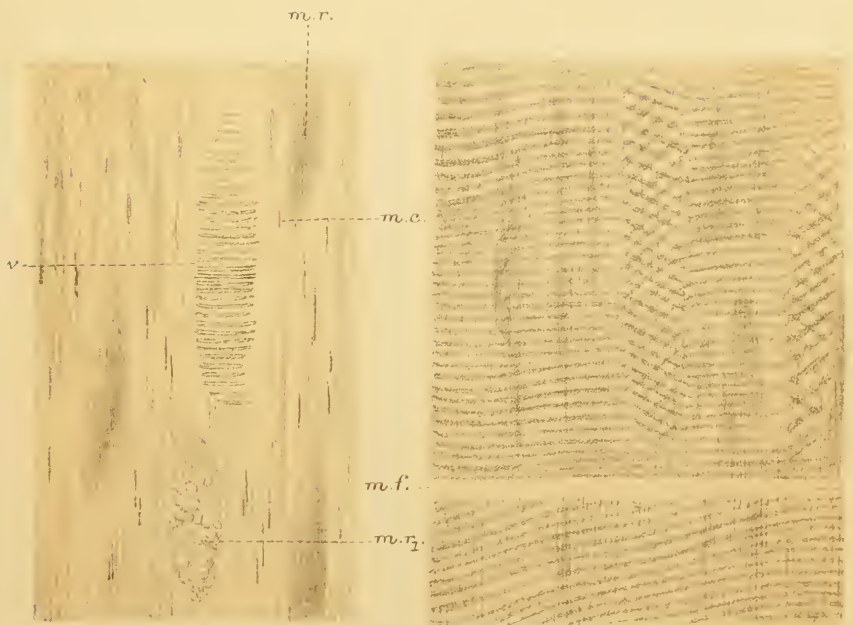 m.r.
m.c.
v
m.f.
m.r₁.